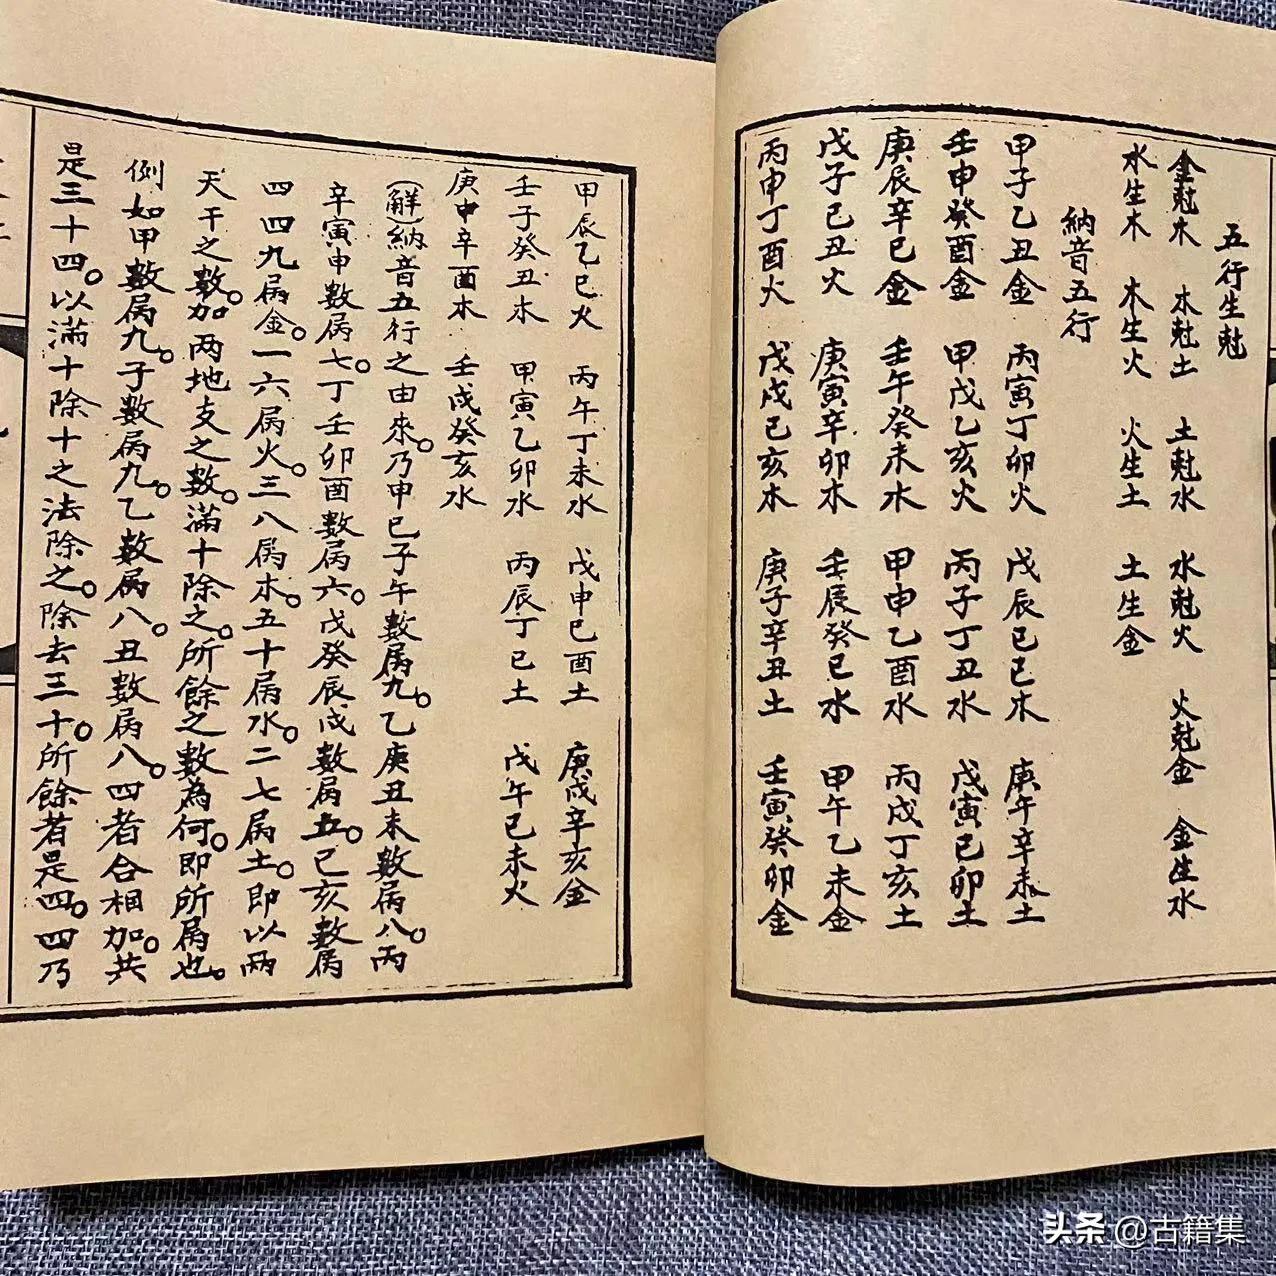 五行生尅
金尅木 木尅土 土尅水 水尅火 火尅金 金生水
水生木 木生火 火生土 土生金
納音五行
甲子乙丑金 丙寅丁卯火 戊辰己巳木 庚午辛未土
壬申癸酉金 甲戌乙亥火 丙子丁丑水 戊寅己卯土
庚辰辛巳金 壬午癸未木 甲申乙酉水 丙戌丁亥土
戊子己丑火 庚寅辛卯木 壬辰癸巳水 甲午乙未金
丙申丁酉火 戊戌己亥木 庚子辛丑土 壬寅癸卯金
甲辰乙巳火 丙午丁未水 戊申己酉土 庚戌辛亥金
壬子癸丑木 甲寅乙卯水 丙辰丁巳土 戊午己未火
庚申辛酉木 壬戌癸亥水
(解)納音五行之由來。乃甲己子午數屬九。乙庚丑未數屬八。丙
辛寅申數屬七。丁壬卯酉數屬六。戊癸辰戌數屬五。巳亥數屬
四四九屬金。一六屬火。三八屬木。五十屬水。二七屬土。即以兩
天干之數。加两地支之數。滿十除之。所餘之數為何。即所屬也。
例如甲數屬九。子數屬九。乙數屬八。丑數屬八。四者合相加。共
是三十四。以滿十除十之法除之。除去三十。所餘者是四。四乃
头条 @古籍集